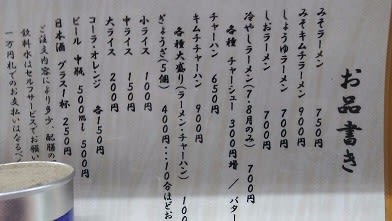 お品書き
みそラーメン 750円
みそキムチラーメン 900円
しょうゆラーメン 700円
しおラーメン 700円
冷やしラーメン(7・8月のみ) 700円
各種 チャーシュー 300円増 / バター
チャーハン 650円
キムチチャーハン 900円
各種大盛り(ラーメン・チャーハン) 100円
ぎょうざ(5個) 400円…10分ほどお
小ライス 100円
中ライス 150円
大ライス 200円
コーラ・オレンジ 各150円
ビール 中瓶 500ml 500円
日本酒 グラス1杯 250円
ご注文内容により多少、配膳の
飲料水はセルフサービスでお願い
一万円札でのお支払いはなるべ